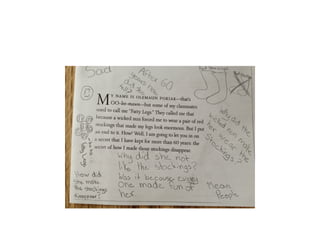 Sad
After 60
years now
did she
tell?
MY NAME IS OLEMAUN POKIAK—that's
OO-lee-maun—but some of my classmates
used to call me "Fatty Legs." They called me that
because a wicked nun forced me to wear a pair of red
stockings that made my legs look enormous. But I put
an end to it. How? Well, I am going to let you in on
a secret that I have kept for more than 60 years: the
secret of how I made those stockings disappear.
Why did the
wicked nun make
her wear the
stockings
Why did she not
like the stockings?
Was it because every
one made fun of
her
How did
she make
the stockings
disappear?
Mean
People